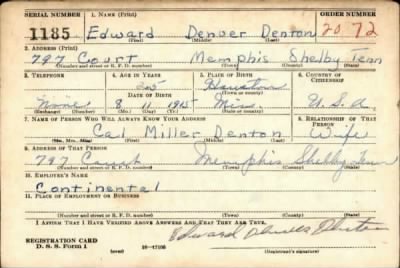 SERIAL NUMBER 1. NAME (Print) ORDER NUMBER
1185 Edward Denver Denton 2072
(First) (Middle) (Last)
2. ADDRESS (Print)
797 Court Memphis Shelby Tenn
(Number and street or R. F. D. number) (Town) (County) (State)
3. TELEPHONE 4. AGE IN YEARS 5. PLACE OF BIRTH 6. COUNTRY OF CITIZENSHIP
25 Houston
None 8 11 1915 Miss. U.S.A.
(Exchange) (Number) (Mo.) (Day) (Yr.) (State or country)
7. NAME OF PERSON WHO WILL ALWAYS KNOW YOUR ADDRESS 8. RELATIONSHIP OF THAT PERSON
Miller Denton Wife
(Mr., Mrs., Miss) (First) (Middle) (Last)
9. ADDRESS OF THAT PERSON
797 Memphis Shelby Tenn
(Number and street or R. F. D. number) (Town) (County) (State)
10. EMPLOYER'S NAME
Continental
11. PLACE OF EMPLOYMENT OR BUSINESS
(Number and street or R. F. D. number) (Town) (County) (State)
I AFFIRM THAT I HAVE VERIFIED ABOVE ANSWERS AND THAT THEY ARE TRUE.
REGISTRATION CARD
D. S. S. Form 1 (over) 16-17105 Edward Denton
(Registrant's signature)